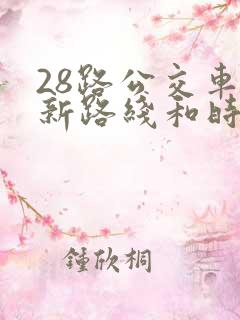 28路公交車
新路綫和時
鍾欣桐